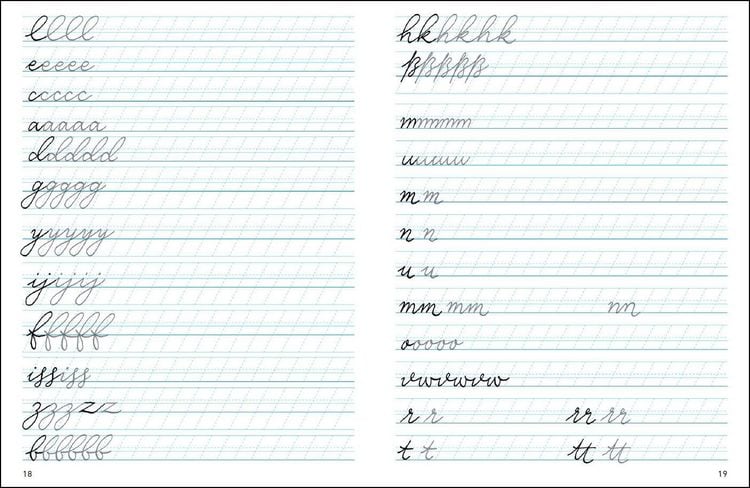 llll
eeeee
ccccc
aaaaa
ddddd
ggggg
yyyyy
ijijij
fffff
ississ
zzzzz
bbbbb
18
hkhkhk
ßßßßß
m m
n n
u u
mm mm nn
ooooo
vwvwvw
r r rr rr
t t tt tt
19